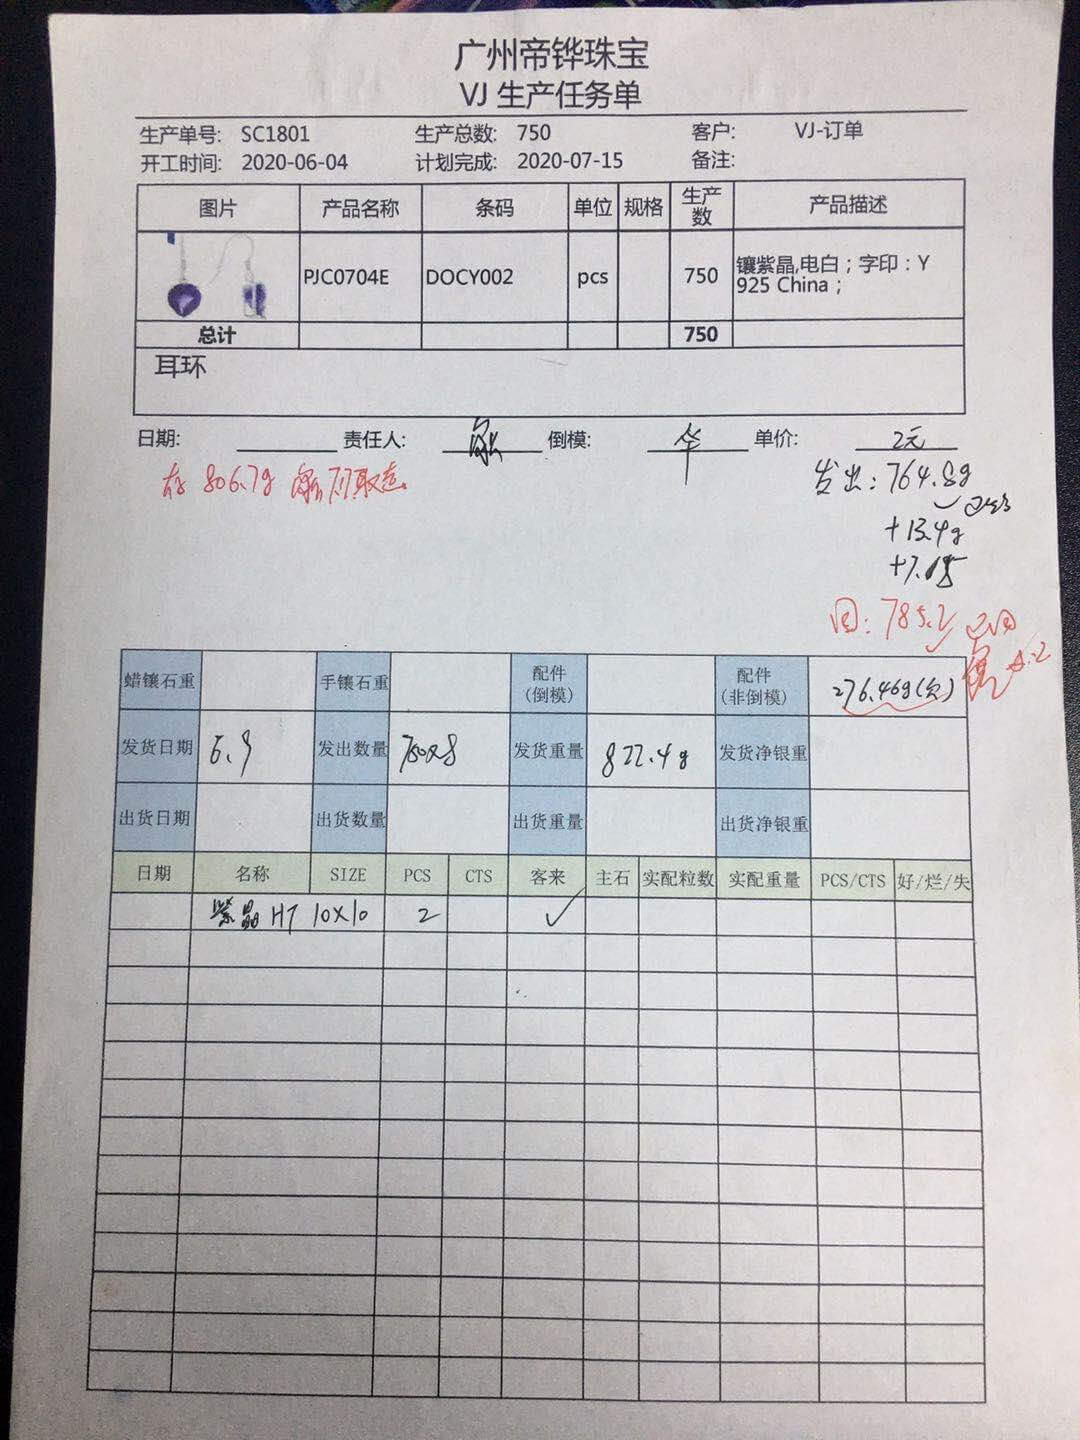 广州帝铧珠宝
VJ 生产任务单
生产单号: SC1801 生产总数: 750 客户: VJ-订单
开工时间: 2020-06-04 计划完成: 2020-07-15 备注:
图片 产品名称 条码 单位 规格 生产数 产品描述
PJC0704E DOCY002 pcs 750 镶紫晶,电白；字印：Y
925 China；
总计 750
耳环
日期: 责任人: 倒模: 华 单价: 2元
存 806.7g 取走
发出: 764.8g
+13.4g
回: 785.2
蜡镶石重 手镶石重 配件(倒模) 配件(非倒模) 276.46g(欠)
发货日期 6.9 发出数量 750x8 发货重量 822.4g 发货净银重
出货日期 出货数量 出货重量 出货净银重
日期 名称 SIZE PCS CTS 客来 主石 实配粒数 实配重量 PCS/CTS 好/烂/失
紫晶 HT 10X10 2 ✓